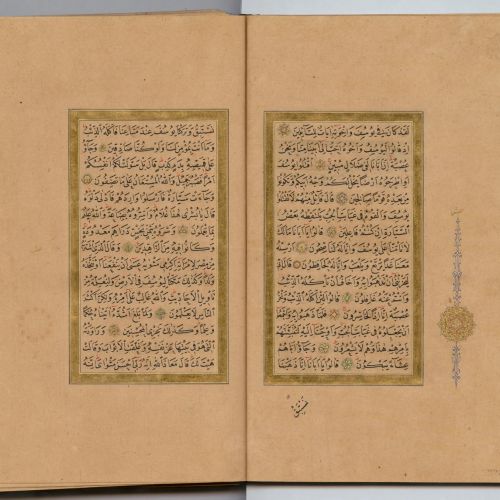 لقد كان في يوسف وإخوته آيات للسائلين
إذ قالوا ليوسف وأخوه أحب إلى أبينا منا ونحن
عصبة إن أبانا لفي ضلال مبين اقتلوا يوسف
أو اطرحوه أرضا يخل لكم وجه أبيكم وتكونوا
من بعده قوما صالحين قال قائل منهم لا تقتلوا
يوسف وألقوه في غيابت الجب يلتقطه بعض
السيارة إن كنتم فاعلين قالوا يا أبانا مالك
لا تأمنا على يوسف وإنا له لناصحون أرسله
معنا غدا يرتع ويلعب وإنا له لحافظون قال إني
ليحزنني أن تذهبوا به وأخاف أن يأكله الذئب
وأنتم عنه غافلون قالوا لئن أكله الذئب ونحن
عصبة إنا إذا لخاسرون فلما ذهبوا به وأجمعوا
أن يجعلوه في غيابت الجب وأوحينا إليه لتنبئنهم
بأمرهم هذا وهم لا يشعرون وجاؤا أباهم
عشاء يبكون قالوا يا أبانا إنا ذهبنا
نستبق
نستبق وتركنا يوسف عند متاعنا فأكله الذئب
وما أنت بمؤمن لنا ولو كنا صادقين وجاؤا
على قميصه بدم كذب قال بل سولت لكم أنفسكم
أمرا فصبر جميل والله المستعان على ما تصفون
وجاءت سيارة فأرسلوا واردهم فأدلى دلوه
قال يا بشرى هذا غلام وأسروه بضاعة والله عليم
بما يعملون وشروه بثمن بخس دراهم معدودة
وكانوا فيه من الزاهدين وقال الذي اشتراه
من مصر لامرأته أكرمي مثواه عسى أن ينفعنا أو نتخذه
ولدا وكذلك مكنا ليوسف في الأرض ولنعلمه من
تأويل الأحاديث والله غالب على أمره ولكن أكثر
الناس لا يعلمون ولما بلغ أشده آتيناه حكما
وعلما وكذلك نجزي المحسنين وراودته
التي هو في بيتها عن نفسه وغلقت الأبواب وقالت
هيت لك قال معاذ الله إنه ربي أحسن مثواي إنه